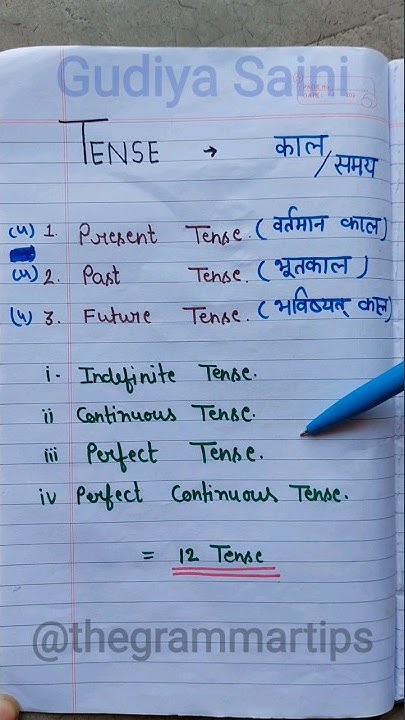 Gudiya Saini
TENSE → काल/समय
(4) 1. Present Tense. (वर्तमान काल)
(4) 2. Past Tense. (भूतकाल)
(4) 3. Future Tense. (भविष्यत् काल)
i. Indefinite Tense.
ii Continuous Tense.
iii Perfect Tense.
iv Perfect Continuous Tense.
= 12 Tense
@thegrammartips